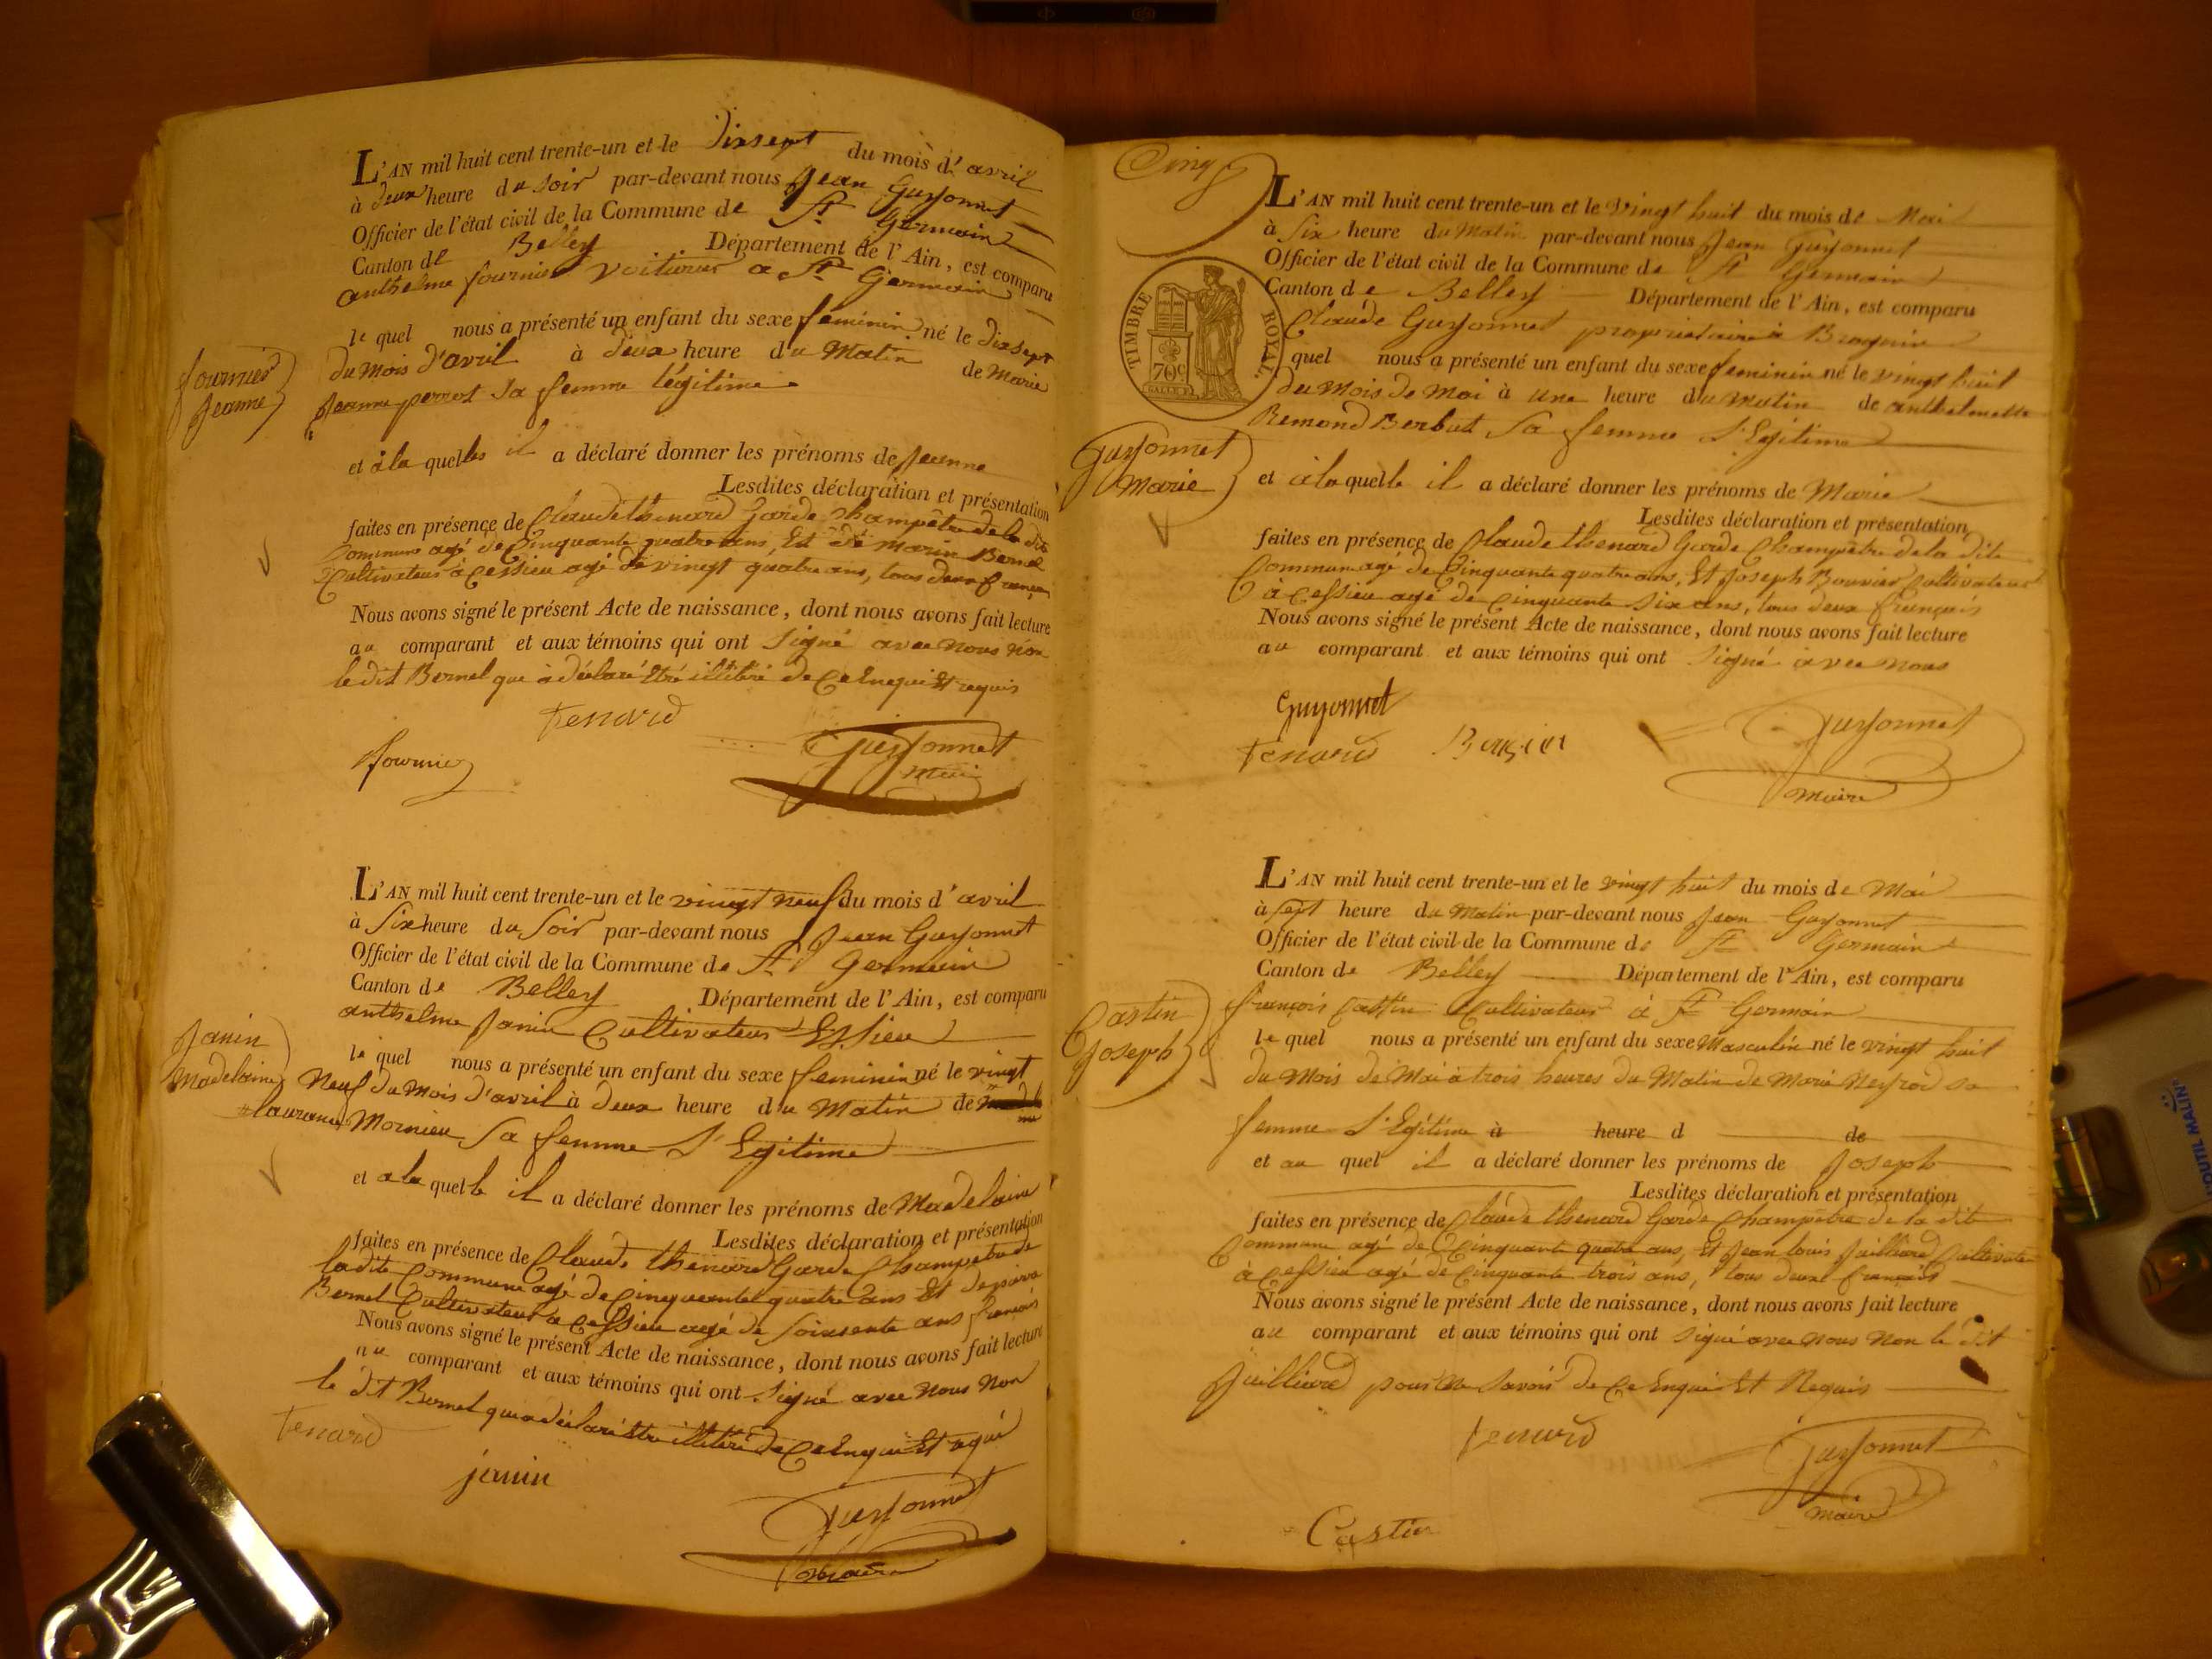 L'AN mil huit cent trente-un et le dixsept du mois d'avril
à deux heure du soir par-devant nous Jean Guyonnet
Officier de l'état civil de la Commune de St Germain
Canton de Belley Département de l'Ain, est comparu
anthelme fournier voiturier a St Germain
le quel nous a présenté un enfant du sexe feminin né le dixsept
du mois d'avril à deux heure du Matin de Marie
Jeanne perrot sa femme légitime
fournier
Jeanne
et à la quelle il a déclaré donner les prénoms de Jeanne
Lesdites déclaration et présentation
faites en présence de Claude thenard Garde Champêtre de la dite
Commune agé de Cinquante quatre ans, Et de marin Bernel
Cultivateur à Cessieu agé de vingt quatre ans, tous deux français
Nous avons signé le présent Acte de naissance, dont nous avons fait lecture
au comparant et aux témoins qui ont Signé avec nous non
le dit Bernel qui à déclaré Etre illitéré de Ce Enquis Et requis
Tenard
fournier
Guyonnet
maire
L'AN mil huit cent trente-un et le vingt neuf du mois d'avril
à Six heure du Soir par-devant nous Jean Guyonnet
Officier de l'état civil de la Commune de St Germain
Canton de Belley Département de l'Ain, est comparu
anthelme Janin Cultivateur Essieu
le quel nous a présenté un enfant du sexe feminin né le vingt
Neuf du Mois d'avril à deux heure du Matin de
Mornieu Sa femme L'Egitime
Janin
Madelaine
et a la quelle il a déclaré donner les prénoms de Madelaine
Lesdites déclaration et présentation
faites en présence de Claude thenard Garde Champetre de
la dite Commune agé de Cinquante quatre ans Et de
Bernel Cultivateur a Cessieu agé de Soixsente ans français
Nous avons signé le présent Acte de naissance, dont nous avons fait lecture
au comparant et aux témoins qui ont Signé avec nous Non
le dit Bernel qui a déclaré Etre illitéré de Ce Enquis Et requi
Tenard
janin
Guyonnet
Maire
Cinq
TIMBRE ROYAL.
70c
L'AN mil huit cent trente-un et le vingt huit du mois de Mai
à Six heure du Matin par-devant nous Jean Guyonnet
Officier de l'état civil de la Commune de St Germain
Canton de Belley Département de l'Ain, est comparu
Claude Guyonnet proprietaire à
quel nous a présenté un enfant du sexe feminin né le vingt huit
du Mois de Mai à une heure du Matin de anthelmette
Remond Berbut Sa femme L'Egitime
Guyonnet
Marie
et à la quelle il a déclaré donner les prénoms de Marie
Lesdites déclaration et présentation
faites en présence de Claude thenard Garde Champêtre de la dite
Commun agé de Cinquante quatre ans, Et Joseph Bouvier Cultivateur
à Cessieu agé de Cinquante Six ans, tous deux français
Nous avons signé le présent Acte de naissance, dont nous avons fait lecture
au comparant et aux témoins qui ont Signé avec nous
Guyonnet
Tenard
Guyonnet
maire
L'AN mil huit cent trente-un et le vingt huit du mois de Mai
à Sept heure du Matin par-devant nous Jean Guyonnet
Officier de l'état civil de la Commune de St Germain
Canton de Belley Département de l'Ain, est comparu
françois Castin Cultivateur à St Germain
le quel nous a présenté un enfant du sexe Masculin né le vingt huit
du Mois de Mai à trois heures du Matin de Marie Neyrod sa
femme L'Egitime à heure d de
Castin
Joseph
et au quel il a déclaré donner les prénoms de Joseph
Lesdites déclaration et présentation
faites en présence de Claude thenard Garde Champêtre de la dite
Commune agé de Cinquante quatre ans, Et Jean louis Juilliard Cultivateur
à Cessieu agé de Cinquante trois ans, tous deux français
Nous avons signé le présent Acte de naissance, dont nous avons fait lecture
au comparant et aux témoins qui ont signé avec nous Non le dit
Juilliard pour ne Savoir de Ce Enquis Et Requis
Tenard
Guyonnet
maire
Castin
L'OUTIL MALIN